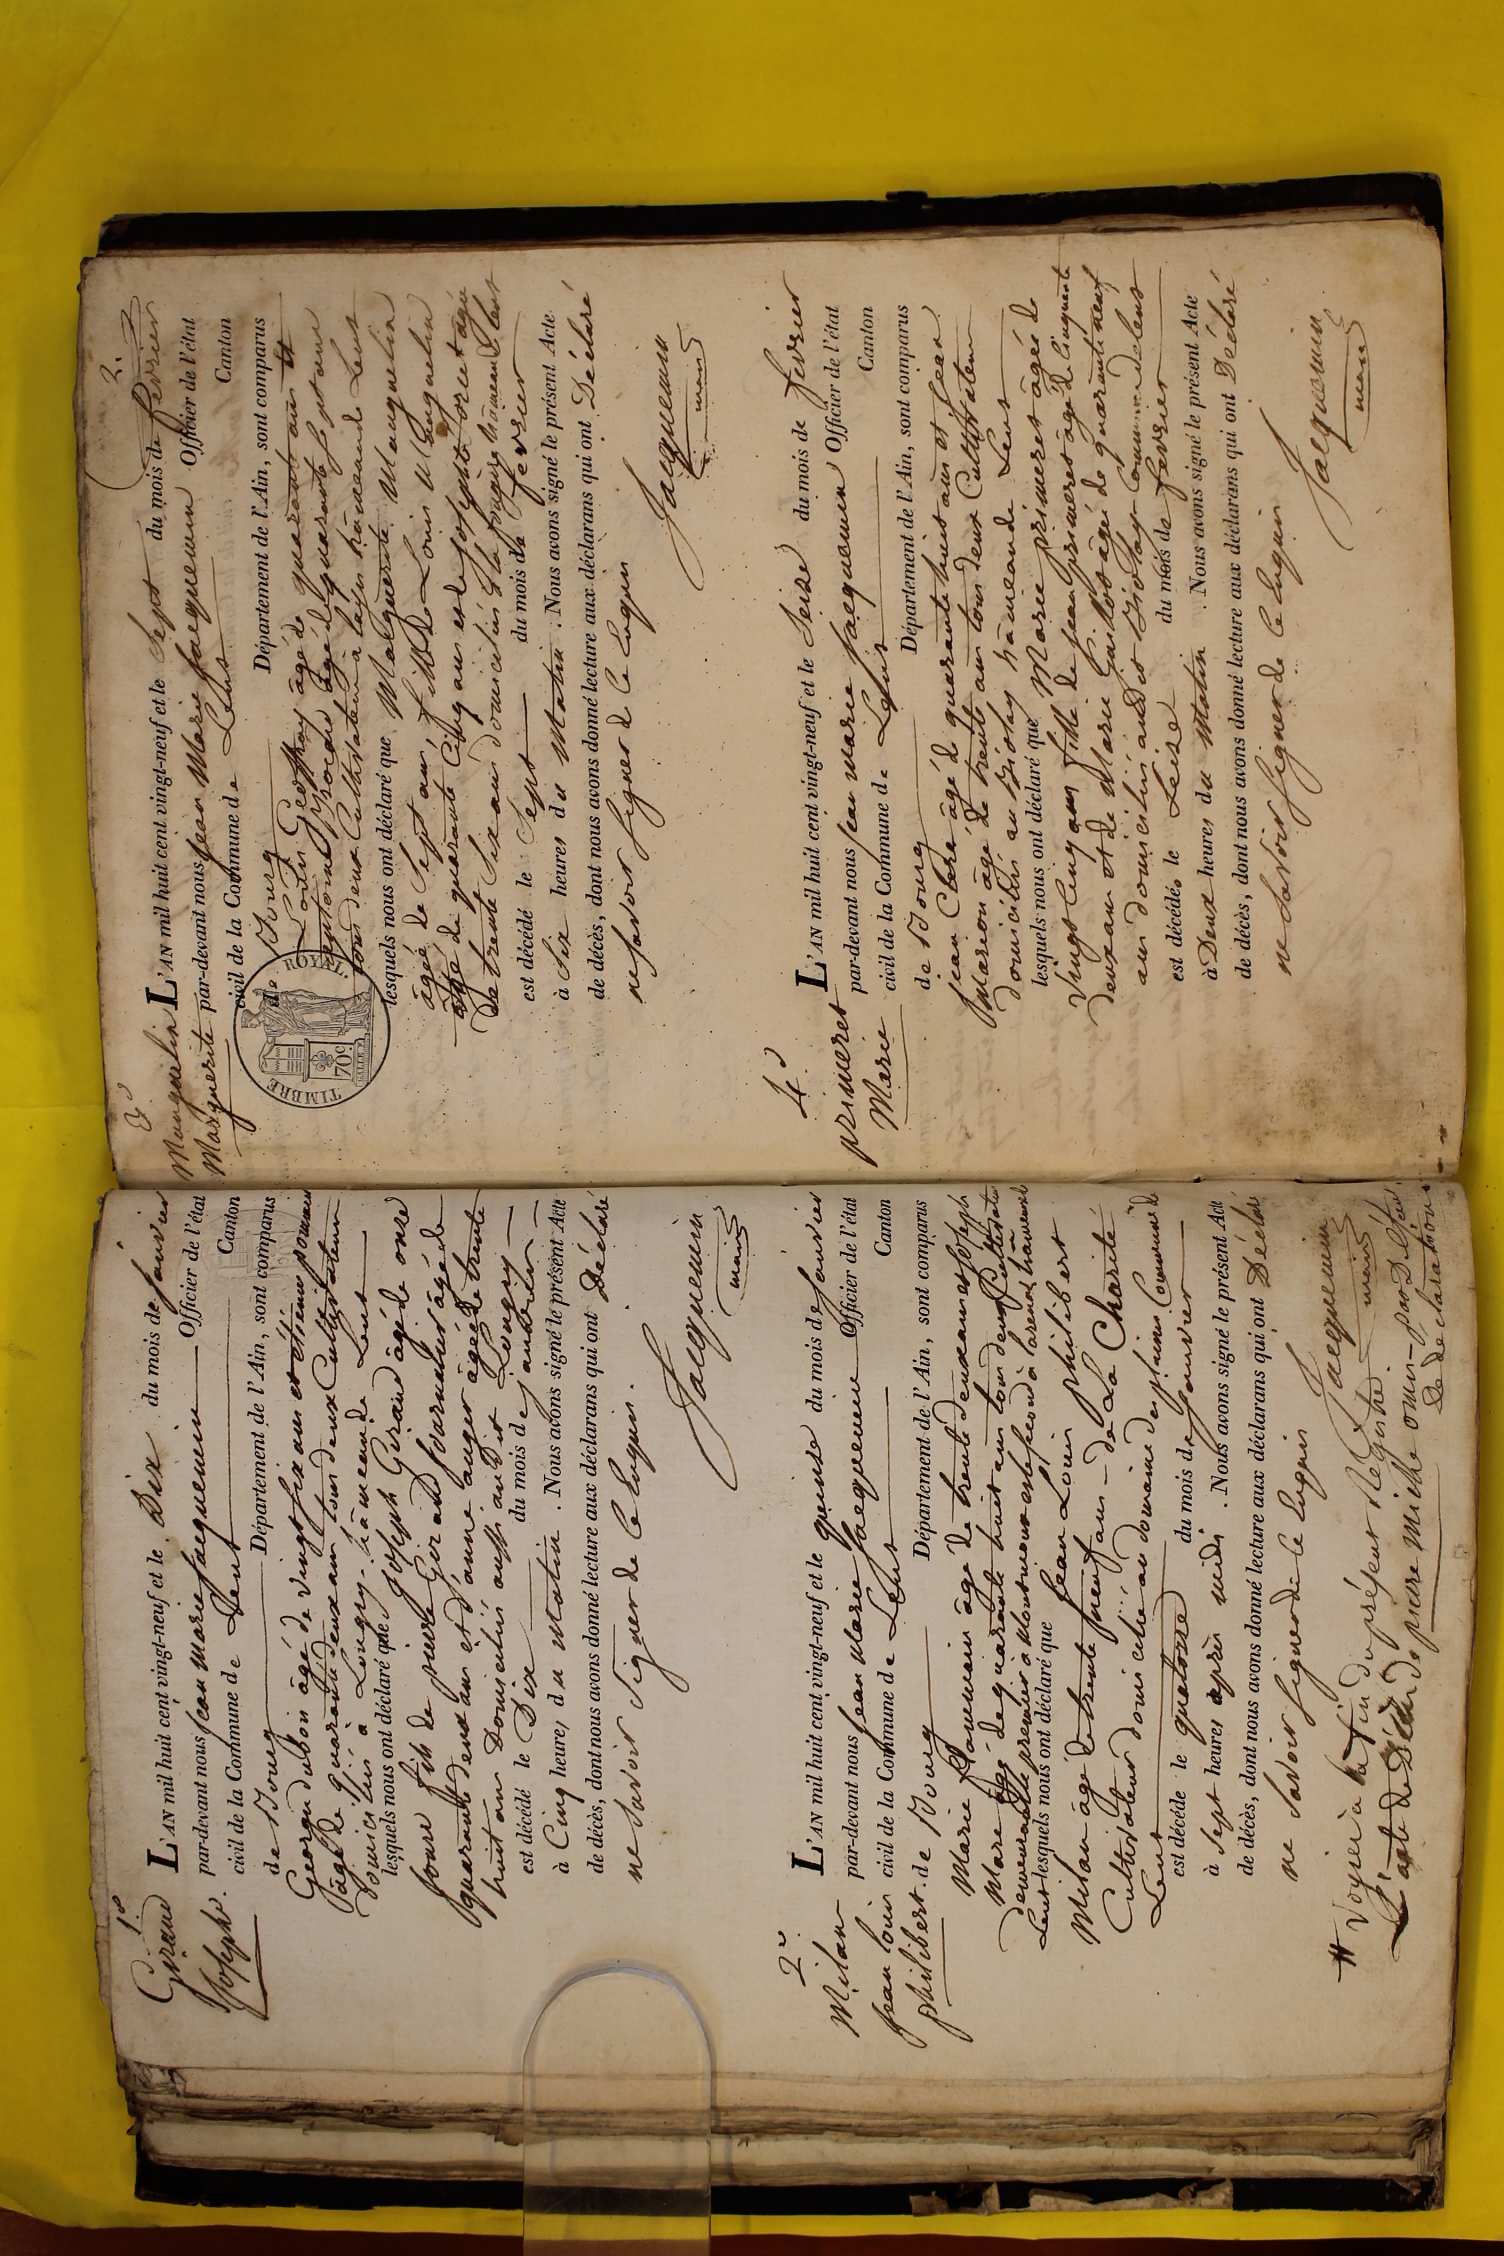 1.o
Giraud
Joseph.
L'AN mil huit cent vingt-neuf et le Dix du mois de janvier
par-devant nous jean Marie Jacquemin Officier de l'état
civil de la Commune de Lent Canton
de Bourg Département de l'Ain, sont comparus
George dubois âgé de vingt six ans et étienne
âgé de quarante deux ans tous deux Cultivateurs
domiciliés à Longry hameau de Lent
lesquels nous ont déclaré que Joseph Giraud âgé de onze
jours fils de pierre Giraud journalier âgé de
quarante deux ans et d'anne auger âgée de trente
huit ans Domiciliés aussi audit Longry
est décédé le Dix du mois de janvier
à Cinq heures du Matin. Nous avons signé le présent Acte
de décès, dont nous avons donné lecture aux déclarans qui ont Déclaré
ne savoir signer de ce Enquis.
Jacquemin
maire
2.e
Milan
jean louis
philibert.
L'AN mil huit cent vingt-neuf et le quinze du mois de janvier
par-devant nous jean Marie Jacquemin Officier de l'état
civil de la Commune de Lent Canton
de Bourg Département de l'Ain, sont comparus
Marie âgé de trente deux ans et joseph
Mare âgé de quarante huit ans tous deux Cultivateurs
demeurant le premier à et le second à hameau de
Lent lesquels nous ont déclaré que Jean Louis philibert
Milan âgé de trente neuf ans de La Charité
Cultivateur domicilié au domaine des Commune de
Lent
est décédé le quatorze du mois de janvier
à sept heures après midi. Nous avons signé le présent Acte
de décès, dont nous avons donné lecture aux déclarans qui ont Déclaré
ne savoir signer de ce Enquis
Jacquemin
maire
# Voyez à la fin du présent Registre
L'acte de Décès de pierre Miche omis par Défaut
De declaration
2.
3.e
Mauguelin
Marguerite
L'AN mil huit cent vingt-neuf et le Sept du mois de fevrier
par-devant nous jean Marie jacquemin Officier de l'état
civil de la Commune de Lent Canton
de Bourg Département de l'Ain, sont comparus
Louis Geoffray âgé de quarante ans et
antoine âgé de quarante sept ans
tous deux Cultivateurs à hameau de Lent
lesquels nous ont déclaré que Marguerite Mauguelin
âgée de Sept ans fille de Louis Mauguelin
âgé de quarante Cinq ans et de josephte forest âgée
de trente Six ans domiciliés à la hameau de Lent
est décédé le Sept du mois de fevrier
à Six heures du Matin. Nous avons signé le présent Acte
de décès, dont nous avons donné lecture aux déclarans qui ont Déclaré
ne savoir signer de ce Enquis
Jacquemin
maire
TIMBRE ROYAL
70c
4.e
primeret
Marie
L'AN mil huit cent vingt-neuf et le Seize du mois de fevrier
par-devant nous jean marie jacquemin Officier de l'état
civil de la Commune de Lent Canton
de Bourg Département de l'Ain, sont comparus
jean Claré âgé de quarante huit ans et jean
Marion âgé de trente ans tous deux Cultivateurs
domiciliés au Biolay hameau de Lent
lesquels nous ont déclaré que Marie primeret âgée de
vingt Cinq ans fille de jean primeret âgé de Cinquante
deux ans et de Marie Guillot âgée de quarante neuf
ans domiciliés audit Biolay Commune de Lent
est décédée le Seize du mois de fevrier
à Deux heures du Matin. Nous avons signé le présent Acte
de décès, dont nous avons donné lecture aux déclarans qui ont Déclaré
ne savoir signer de ce Enquis
Jacquemin
maire